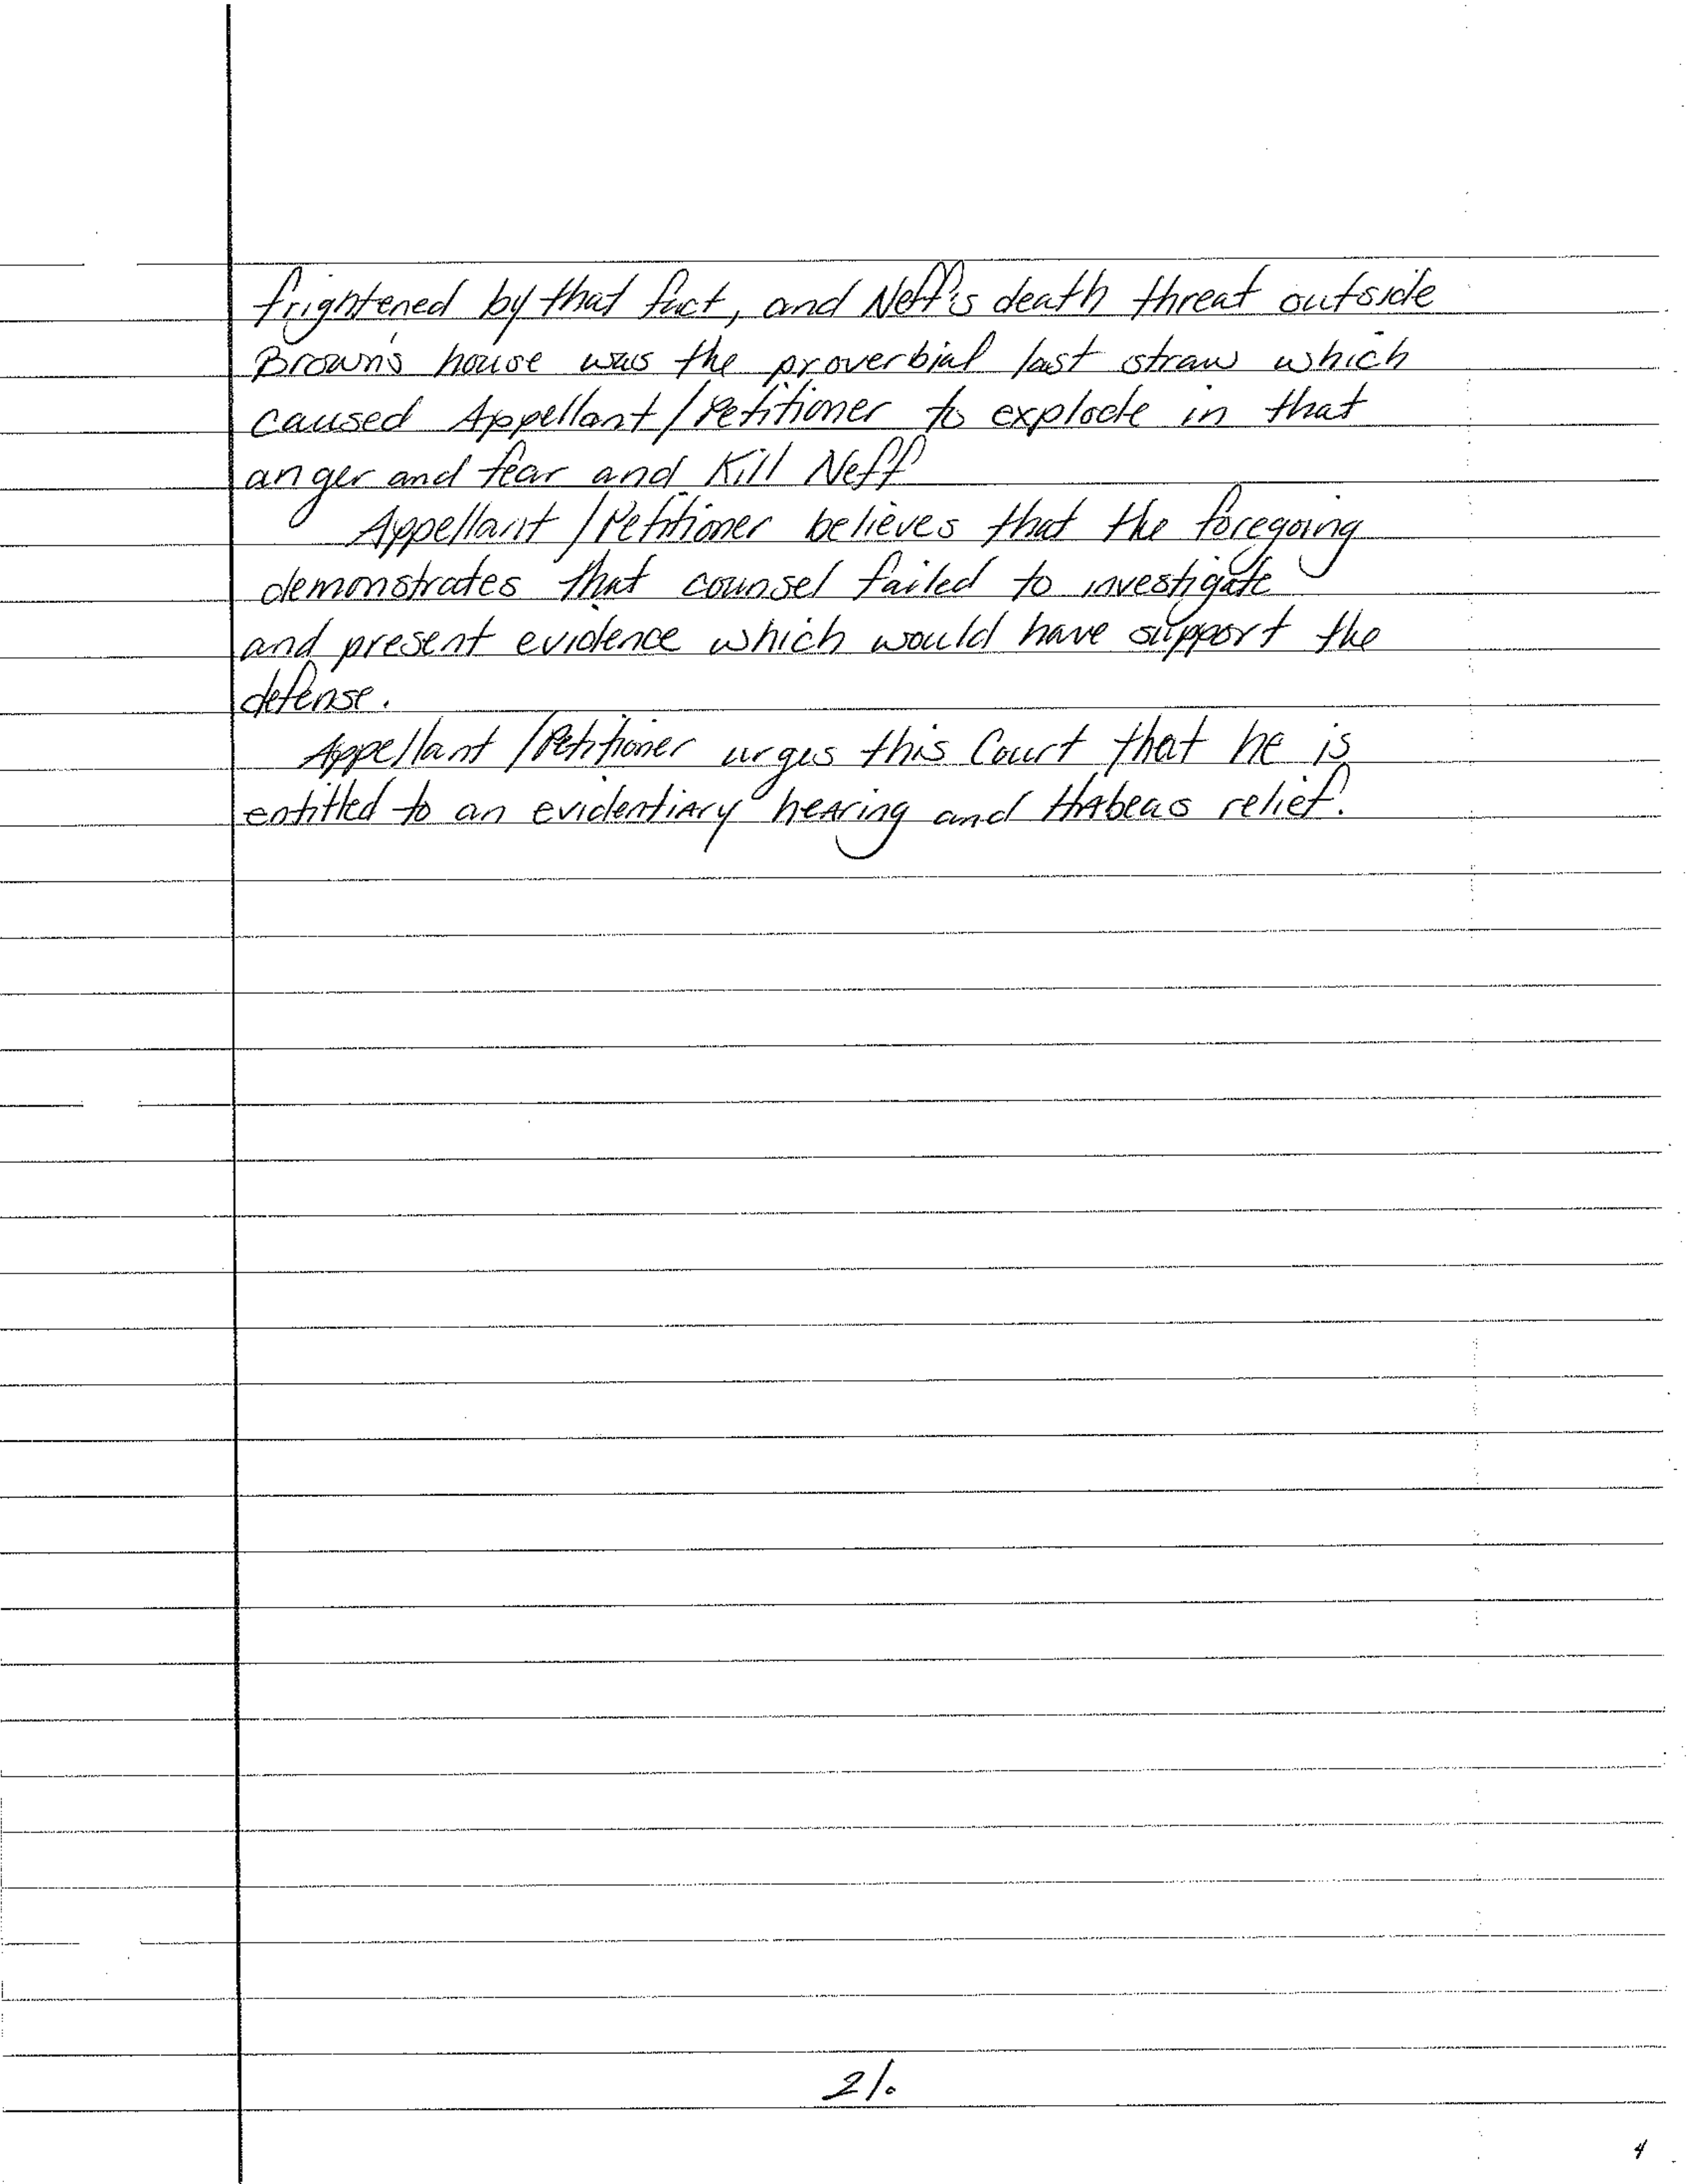 frightened by that fact, and Neff's death threat outside
Brown's house was the proverbial last straw which
caused Appellant/Petitioner to explode in that
anger and fear and Kill Neff
Appellant/Petitioner believes that the foregoing
demonstrates that counsel failed to investigate
and present evidence which would have support the
defense.
Appellant/Petitioner urges this Court that he is
entitled to an evidentiary hearing and HAbeas relief.
21.
4